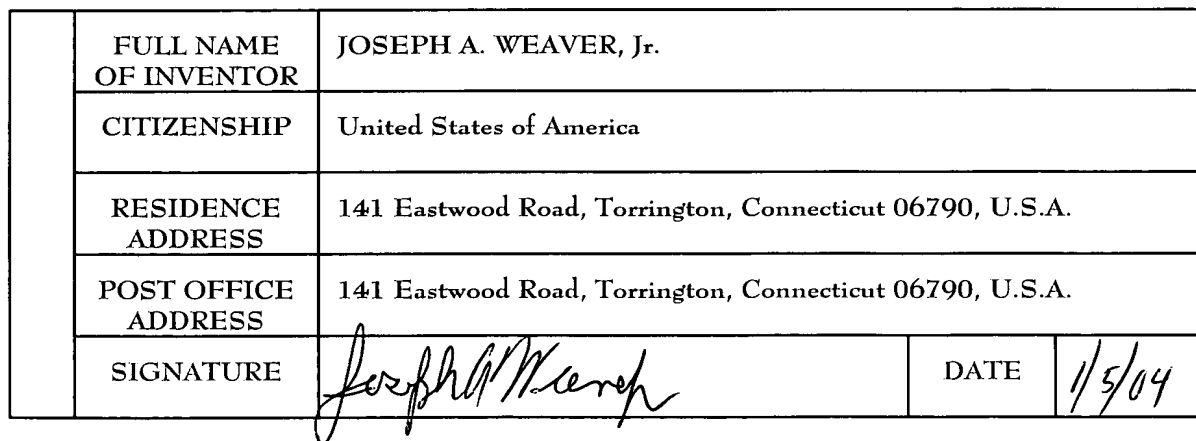 FULL NAME
OF INVENTOR
JOSEPH A. WEAVER, Jr.
CITIZENSHIP
United States of America
RESIDENCE
ADDRESS
141 Eastwood Road, Torrington, Connecticut 06790, U.S.A.
POST OFFICE
ADDRESS
141 Eastwood Road, Torrington, Connecticut 06790, U.S.A.
SIGNATURE
Joseph A Weaver
DATE
1/5/04